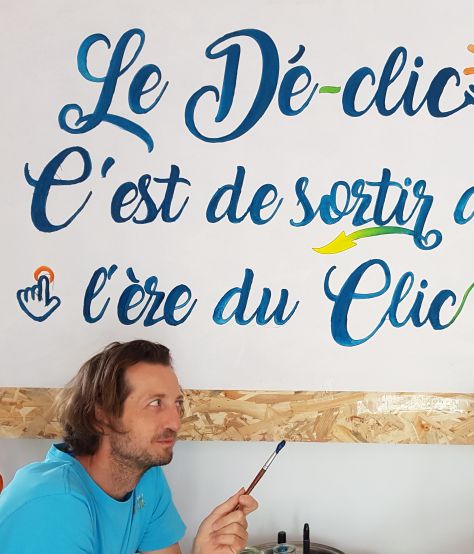 Le Dé-clic
C'est de sortir d
l'ère du Clic